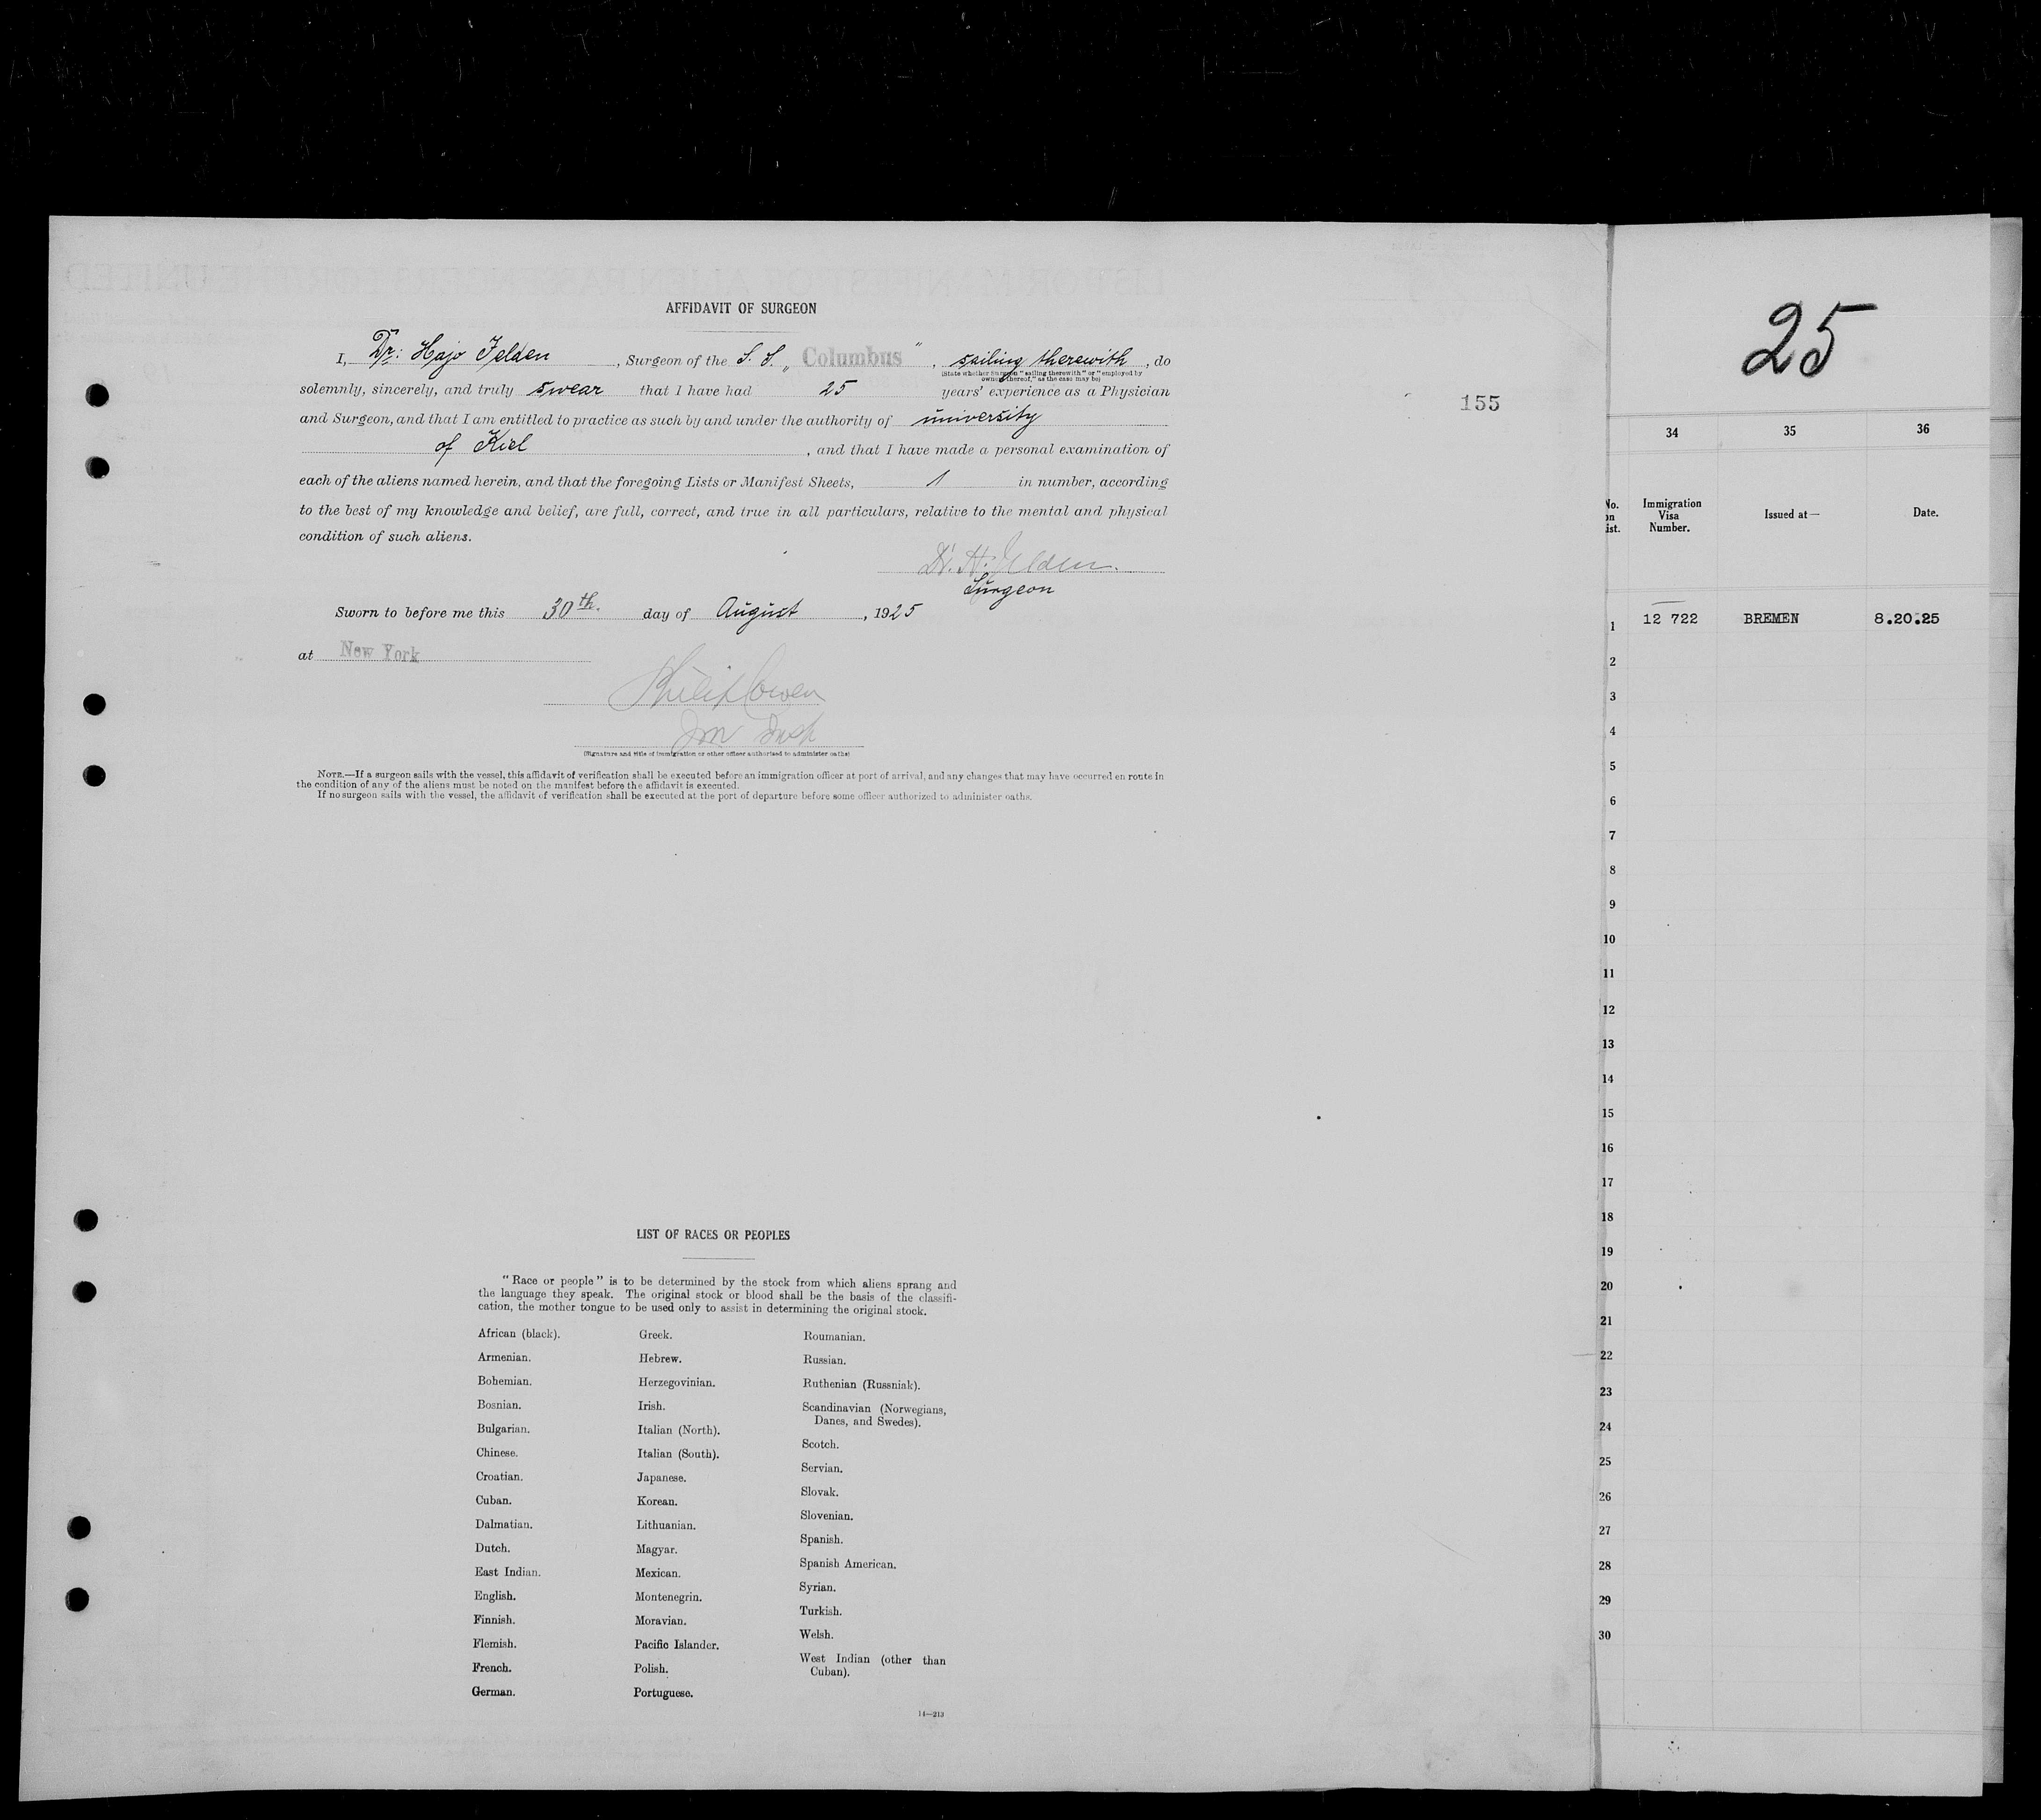 AFFIDAVIT OF SURGEON
I, Dr: Hajo Felden, Surgeon of the S. S. „Columbus", sailing therewith, do
(State whether Surgeon "sailing therewith" or "employed by
owners thereof," as the case may be)
solemnly, sincerely, and truly swear that I have had 25 years' experience as a Physician
and Surgeon, and that I am entitled to practice as such by and under the authority of university
of Kiel, and that I have made a personal examination of
each of the aliens named herein, and that the foregoing Lists or Manifest Sheets, 1 in number, according
to the best of my knowledge and belief, are full, correct, and true in all particulars, relative to the mental and physical
condition of such aliens.
Dr. H. Felden.
Surgeon
Sworn to before me this 30th. day of August, 1925
at New York
Philip Cowen
Imm Insp
(Signature and title of immigration or other officer authorized to administer oaths)
NOTE.—If a surgeon sails with the vessel, this affidavit of verification shall be executed before an immigration officer at port of arrival, and any changes that may have occurred en route in
the condition of any of the aliens must be noted on the manifest before the affidavit is executed.
If no surgeon sails with the vessel, the affidavit of verification shall be executed at the port of departure before some officer authorized to administer oaths.
LIST OF RACES OR PEOPLES
"Race or people" is to be determined by the stock from which aliens sprang and
the language they speak. The original stock or blood shall be the basis of the classifi-
cation, the mother tongue to be used only to assist in determining the original stock.
African (black).
Armenian.
Bohemian.
Bosnian.
Bulgarian.
Chinese.
Croatian.
Cuban.
Dalmatian.
Dutch.
East Indian.
English.
Finnish.
Flemish.
French.
German.
Greek.
Hebrew.
Herzegovinian.
Irish.
Italian (North).
Italian (South).
Japanese.
Korean.
Lithuanian.
Magyar.
Mexican.
Montenegrin.
Moravian.
Pacific Islander.
Polish.
Portuguese.
Roumanian.
Russian.
Ruthenian (Russniak).
Scandinavian (Norwegians,
Danes, and Swedes).
Scotch.
Servian.
Slovak.
Slovenian.
Spanish.
Spanish American.
Syrian.
Turkish.
Welsh.
West Indian (other than
Cuban).
14—213
155
25
34 35 36
No.
on
ist.
Immigration
Visa
Number.
Issued at—
Date.
1 12 722 BREMEN 8.20.25
2
3
4
5
6
7
8
9
10
11
12
13
14
15
16
17
18
19
20
21
22
23
24
25
26
27
28
29
30